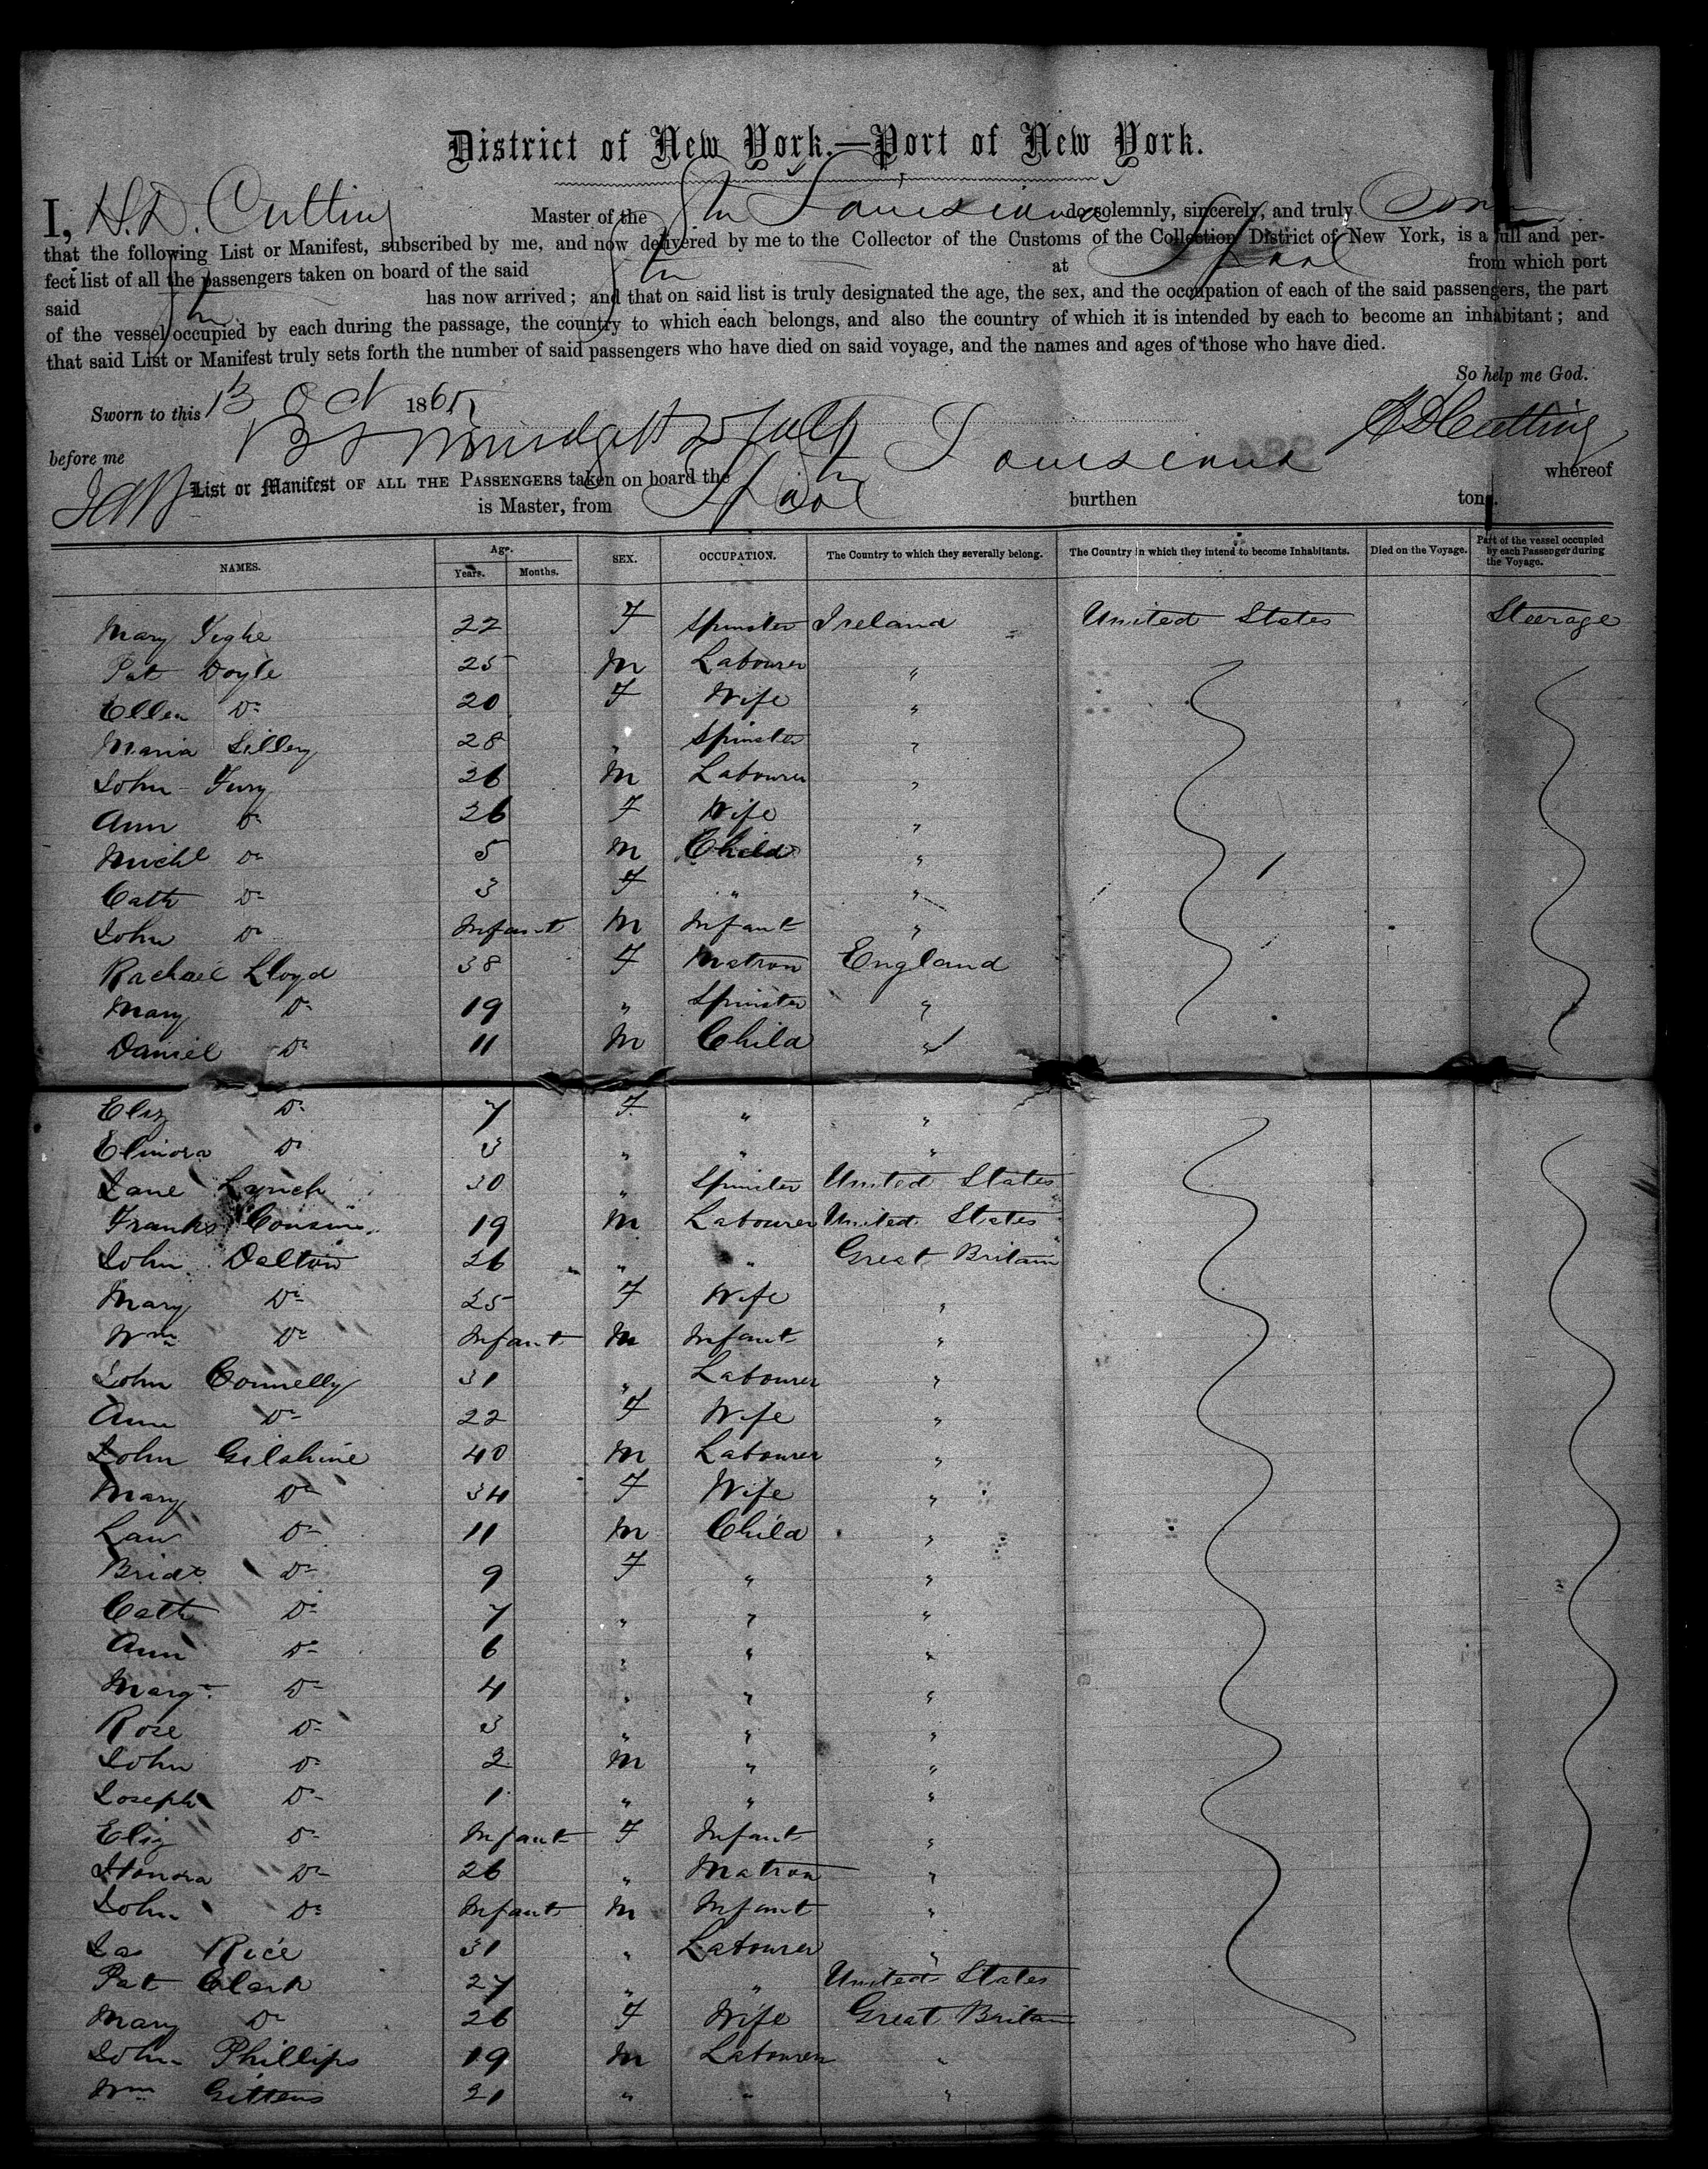 District of New York.—Port of New York.
I, H.D. Cutting Master of the Str Louisiana do solemnly, sincerely, and truly
that the following List or Manifest, subscribed by me, and now delivered by me to the Collector of the Customs of the Collection District of New York, is a full and per-
fect list of all the passengers taken on board of the said Str at L'pool from which port
said Str has now arrived; and that on said list is truly designated the age, the sex, and the occupation of each of the said passengers, the part
of the vessel occupied by each during the passage, the country to which each belongs, and also the country of which it is intended by each to become an inhabitant; and
that said List or Manifest truly sets forth the number of said passengers who have died on said voyage, and the names and ages of those who have died.
So help me God.
Sworn to this 13 Oct 1865
before me
H D Cutting
List or Manifest OF ALL THE PASSENGERS taken on board the Str Louisiana whereof
is Master, from L'pool burthen tons.
NAMES. Age. Years. Months. SEX. OCCUPATION. The Country to which they severally belong. The Country in which they intend to become Inhabitants. Died on the Voyage. Part of the vessel occupied by each Passenger during the Voyage.
Mary Tighe 22 F Spinster Ireland United States Steerage
Pat Doyle 25 M Labourer "
Ellen Do 20 F Wife "
Maria Lilley 28 " Spinster "
John Fury 26 M Labourer "
Ann Do 26 F Wife "
Michl Do 5 M Child "
Cath Do 3 F " "
John Do Infant M Infant "
Rachael Lloyd 38 F Matron England
Mary Do 19 " Spinster "
Daniel Do 11 M Child "
Eliz Do 7 F " "
Elinora Do 3 " " "
Jane Lynch 30 " Spinster United States
Franks Cousins 19 M Labourer United States
John Dalton 26 " " Great Britain
Mary Do 25 F Wife "
Wm Do Infant M Infant "
John Connelly 31 " Labourer "
Ann Do 22 F Wife "
John Gilshine 40 M Labourer "
Mary Do 34 F Wife "
Law Do 11 M Child "
Bridt Do 9 F " "
Cath Do 7 " " "
Ann Do 6 " " "
Margt Do 4 " " "
Rose Do 3 " " "
John Do 2 M " "
Joseph Do 1 " " "
Eliz Do Infant F Infant "
Honora Do 26 " Matron "
John Do Infant M Infant "
Jas Rice 31 " Labourer "
Pat Clark 27 " " United States
Mary Do 26 F Wife Great Britain
John Phillips 19 M Labourer "
Wm Gittens 21 " " "